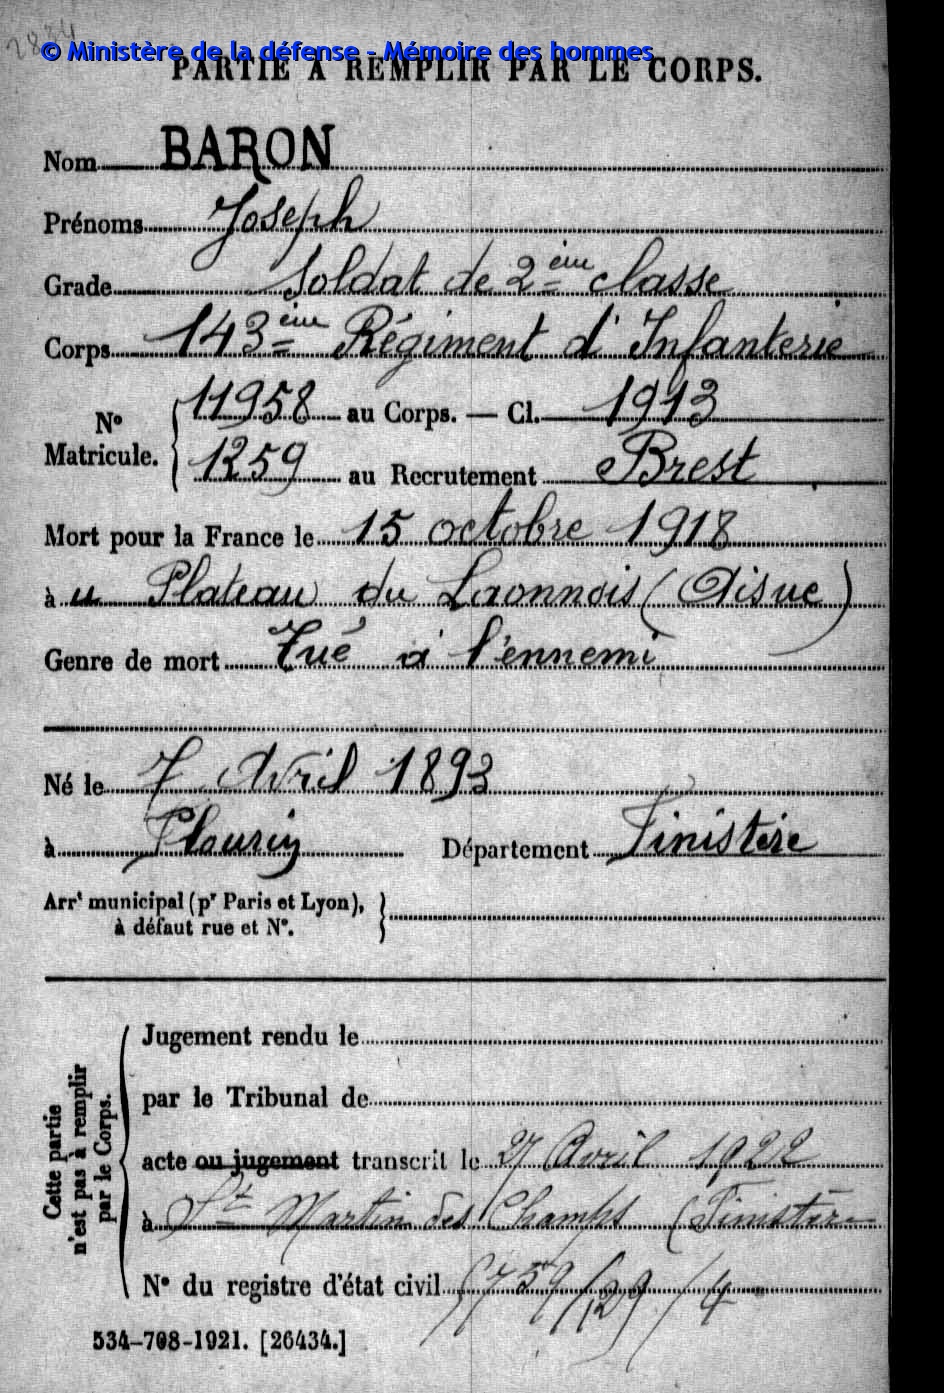 2884
© Ministère de la défense - Mémoire des hommes
PARTIE A REMPLIR PAR LE CORPS.
Nom BARON
Prénoms Joseph
Grade Soldat de 2ème classe
Corps 143ème Régiment d'Infanterie
N° Matricule. { 11958 au Corps. — Cl. 1913
1259 au Recrutement Brest
Mort pour la France le 15 octobre 1918
à u Plateau du Laonnois (Aisne)
Genre de mort Tué à l'ennemi
Né le 7 Avril 1893
à Plourin Département Finistère
Arrt municipal (pr Paris et Lyon),
à défaut rue et N°.
Cette partie n'est pas à remplir par le Corps.
Jugement rendu le
par le Tribunal de
acte ou jugement transcrit le 27 Avril 1922
à St Martin des Champs (Finistère
N° du registre d'état civil
534-708-1921. [26434.]